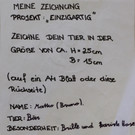 MEINE ZEICHNUNG
PROJEKT: „EINZIGARTIG“
ZEICHNE DEIN TIER IN DER
GRÖßE VON CA. H = 25cm
B = 15cm
(auf ein A4 Blatt oder diese
Rückseite)
NAME:
TIER: Bär
BESONDERHEIT: Brille und